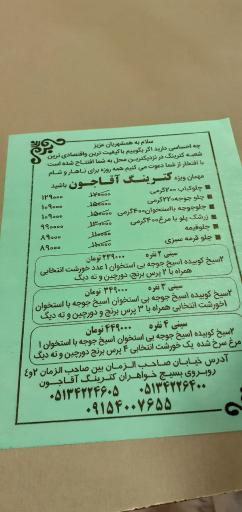 سلام به همشهریان عزیز
چه احساسی دارید اگر بگوییم باکیفیت ترین واقتصادی ترین
شعبه کترینگ در نزدیکترین محل به شما افتتاح شده است
با افتخار از شما دعوت می کنیم همه روزه برای ناهار و شام
مهمان ویژه کترینگ آقاجون باشید
چلوکباب ۲۰۰گرمی ۱۲۹۰۰۰
چلو جوجه۲۲۰گرمی ۱۰۹۰۰۰
چلوجوجه بااستخوان۴۰۰گرمی ۱۰۹۰۰۰
زرشک پلو با مرغ۴۰۰گرمی ۹۹۰۰۰
چلوقیمه ۸۹۰۰۰
چلو قرمه سبزی ۸۹۰۰۰
سینی ۲ نفره ۲۳۹۰۰۰ تومان
۲سیخ کوبیده ۱سیخ جوجه بی استخوان ۱ عدد خورشت انتخابی
همراه با ۲ پرس برنج، دورچین و ته دیگ
سینی ۳ نفره ۳۴۹۰۰۰ تومان
۲سیخ کوبیده ۱سیخ جوجه بی استخوان ۱سیخ جوجه با استخوان
۱خورشت انتخابی همراه با ۳ پرس برنج دورچین و ته دیگ
سینی ۴ نفره ۴۴۹۰۰۰ تومان
۲سیخ کوبیده ۱سیخ جوجه بی استخوان ۱سیخ جوجه با استخوان ۱
مرغ سرخ شده یک خورشت انتخابی ۴ پرس برنج دورچین و ته دیگ
آدرس خیابان صاحب الزمان بین صاحب الزمان ۲و۴
روبروی بسیج خواهران کترینگ آقاجون
۰۵۱۳۴۲۲۴۶۰۵ ۰۵۱۳۴۲۲۶۴۰۰
۰۹۱۵۴۰۰۷۶۵۵